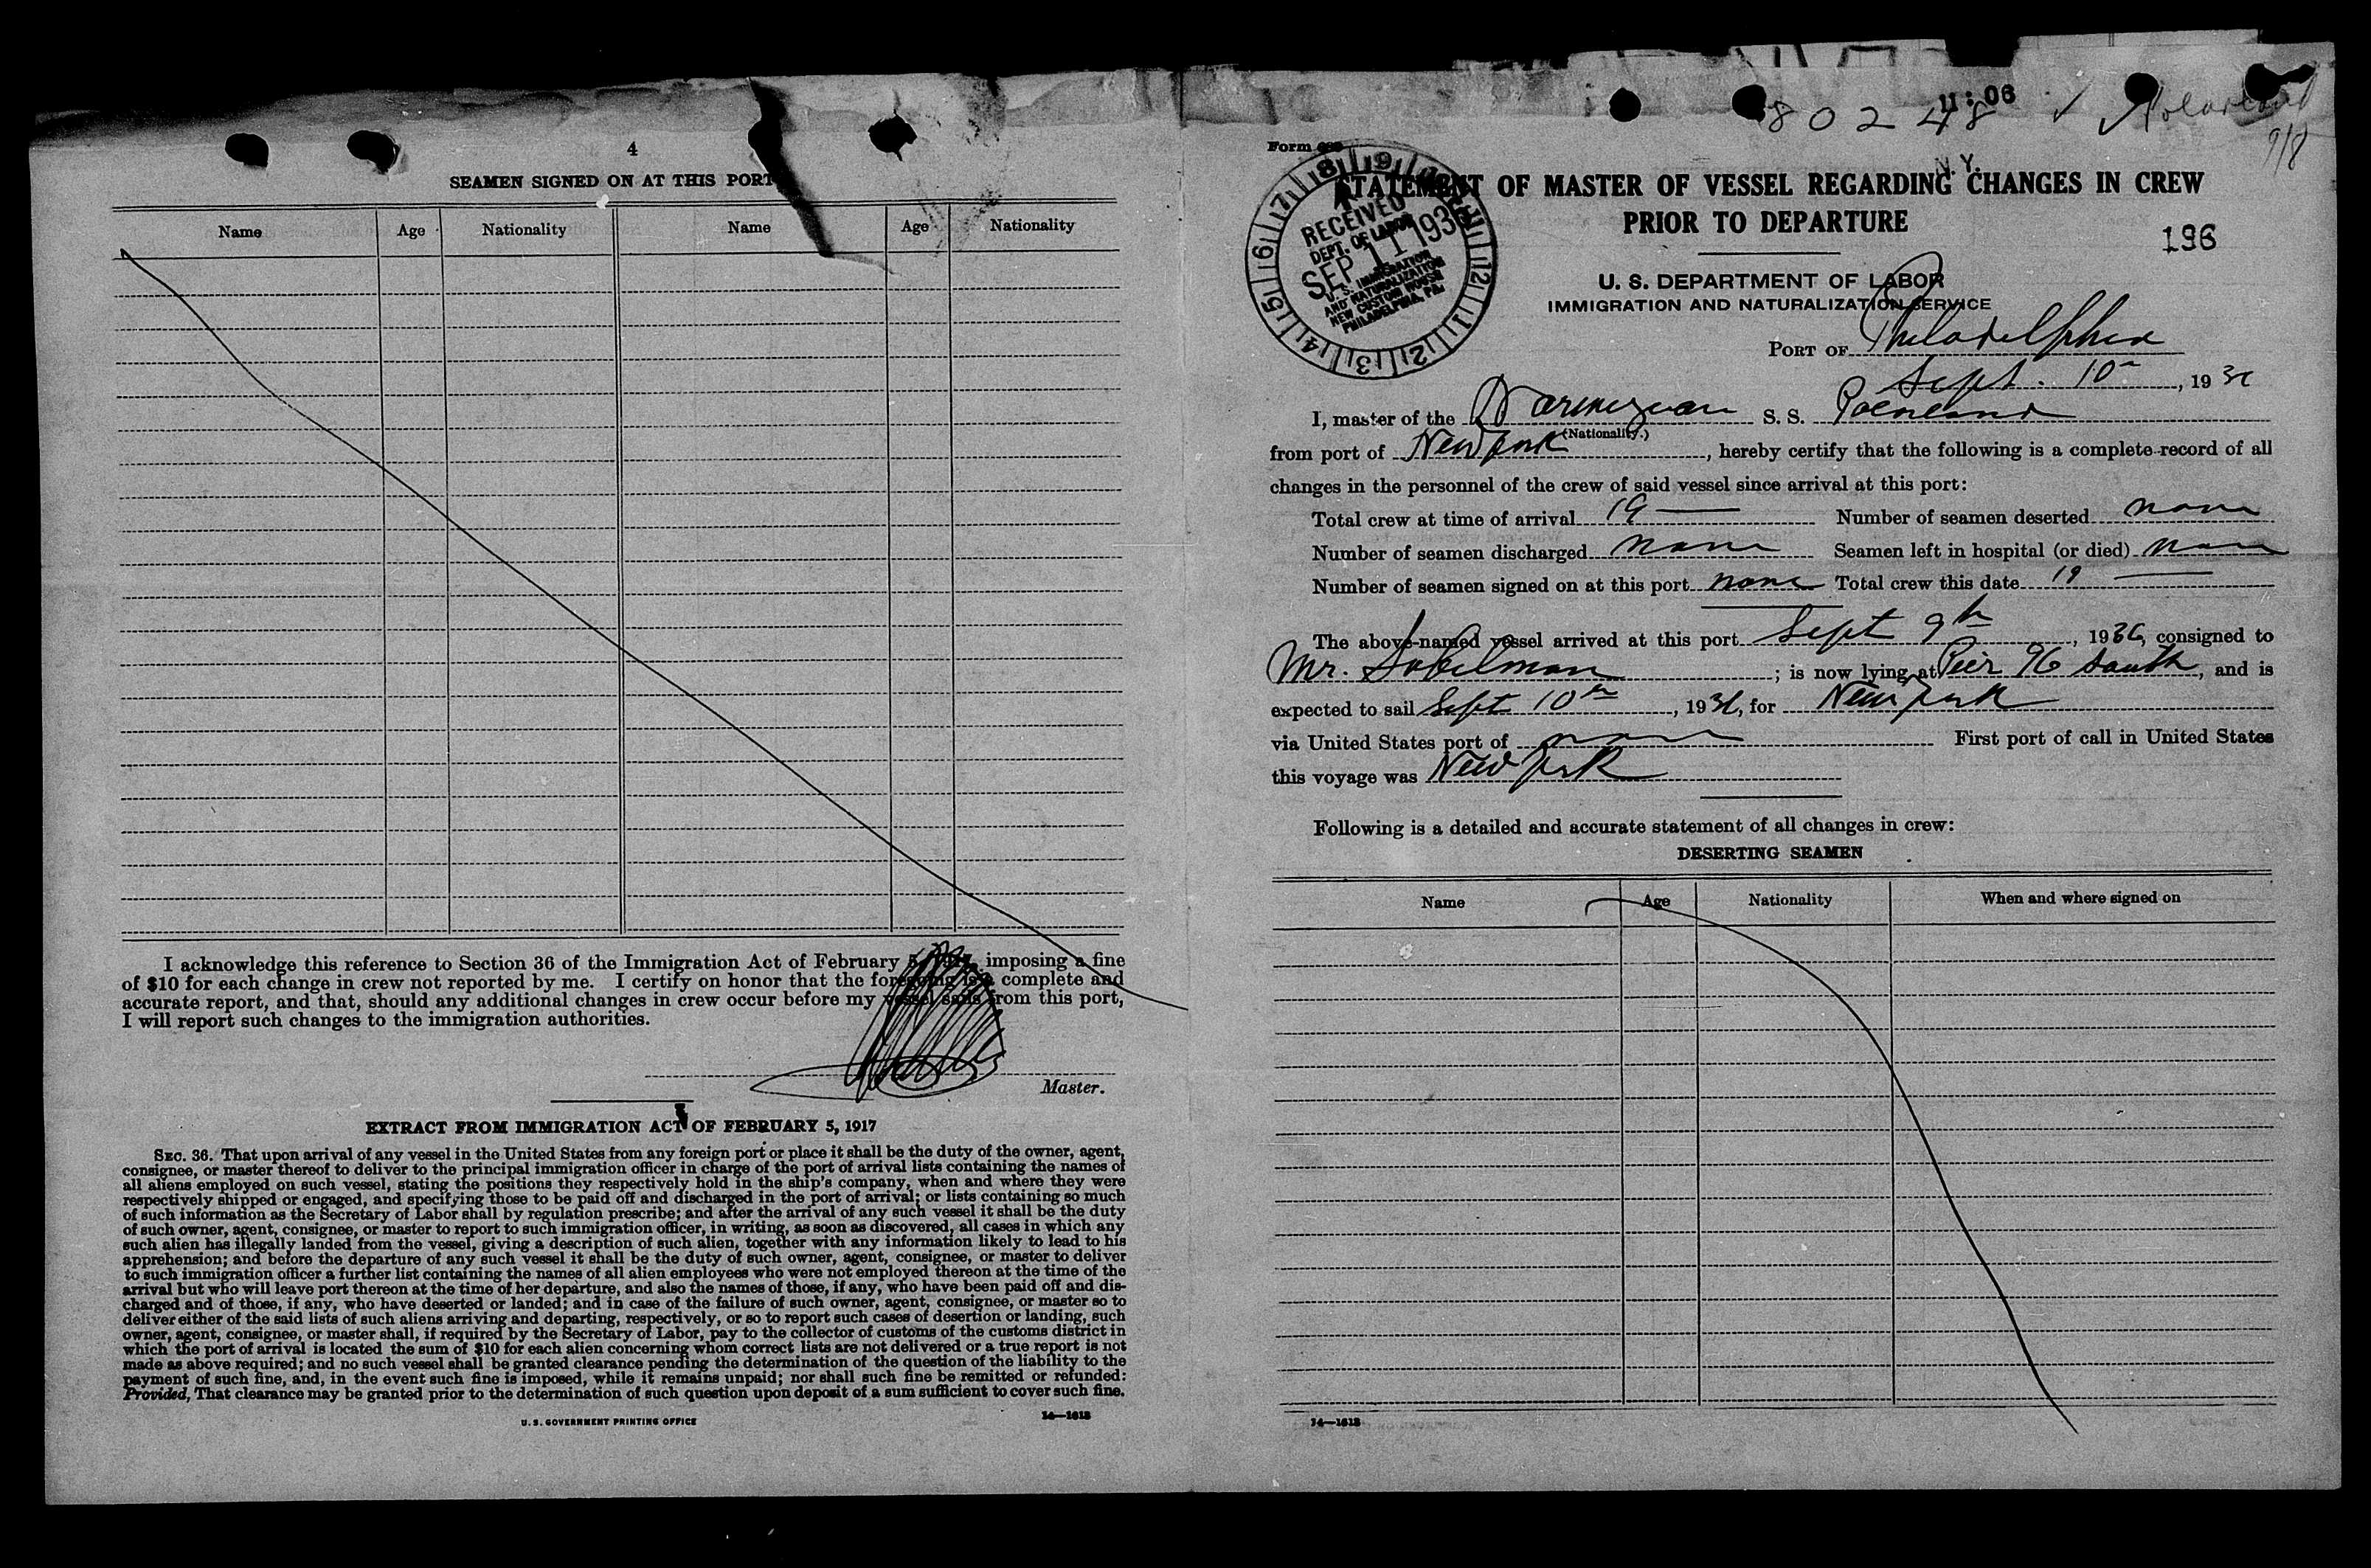 4
SEAMEN SIGNED ON AT THIS PORT
Name Age Nationality Name Age Nationality
I acknowledge this reference to Section 36 of the Immigration Act of February 5, 1917, imposing a fine
of $10 for each change in crew not reported by me. I certify on honor that the foregoing is a complete and
accurate report, and that, should any additional changes in crew occur before my vessel sails from this port,
I will report such changes to the immigration authorities.
Master.
EXTRACT FROM IMMIGRATION ACT OF FEBRUARY 5, 1917
SEC. 36. That upon arrival of any vessel in the United States from any foreign port or place it shall be the duty of the owner, agent,
consignee, or master thereof to deliver to the principal immigration officer in charge of the port of arrival lists containing the names of
all aliens employed on such vessel, stating the positions they respectively hold in the ship's company, when and where they were
respectively shipped or engaged, and specifying those to be paid off and discharged in the port of arrival; or lists containing so much
of such information as the Secretary of Labor shall by regulation prescribe; and after the arrival of any such vessel it shall be the duty
of such owner, agent, consignee, or master to report to such immigration officer, in writing, as soon as discovered, all cases in which any
such alien has illegally landed from the vessel, giving a description of such alien, together with any information likely to lead to his
apprehension; and before the departure of any such vessel it shall be the duty of such owner, agent, consignee, or master to deliver
to such immigration officer a further list containing the names of all alien employees who were not employed thereon at the time of the
arrival but who will leave port thereon at the time of her departure, and also the names of those, if any, who have been paid off and dis-
charged and of those, if any, who have deserted or landed; and in case of the failure of such owner, agent, consignee, or master so to
deliver either of the said lists of such aliens arriving and departing, respectively, or so to report such cases of desertion or landing, such
owner, agent, consignee, or master shall, if required by the Secretary of Labor, pay to the collector of customs of the customs district in
which the port of arrival is located the sum of $10 for each alien concerning whom correct lists are not delivered or a true report is not
made as above required; and no such vessel shall be granted clearance pending the determination of the question of the liability to the
payment of such fine, and, in the event such fine is imposed, while it remains unpaid; nor shall such fine be remitted or refunded:
Provided, That clearance may be granted prior to the determination of such question upon deposit of a sum sufficient to cover such fine.
U. S. GOVERNMENT PRINTING OFFICE 14—1613
11:06
80248
9/8
Form
N. Y.
STATEMENT OF MASTER OF VESSEL REGARDING CHANGES IN CREW
PRIOR TO DEPARTURE
196
RECEIVED
DEPT. OF LABOR
SEP 11 1936
U. S. IMMIGRATION
AND NATURALIZATION
NEW CUSTOM HOUSE
PHILADELPHIA, PA.
U. S. DEPARTMENT OF LABOR
IMMIGRATION AND NATURALIZATION SERVICE
PORT OF Philadelphia
Sept. 10, 1936
I, master of the Norwegian S. S.
(Nationality.)
from port of New York, hereby certify that the following is a complete record of all
changes in the personnel of the crew of said vessel since arrival at this port:
Total crew at time of arrival 19 — Number of seamen deserted none
Number of seamen discharged none Seamen left in hospital (or died) none
Number of seamen signed on at this port none Total crew this date 19 —
The above-named vessel arrived at this port Sept 9th, 1936, consigned to
Mr. Sobelman; is now lying at Pier 96 South, and is
expected to sail Sept 10th, 1936, for New York
via United States port of none First port of call in United States
this voyage was New York
Following is a detailed and accurate statement of all changes in crew:
DESERTING SEAMEN
Name Age Nationality When and where signed on
14—1613